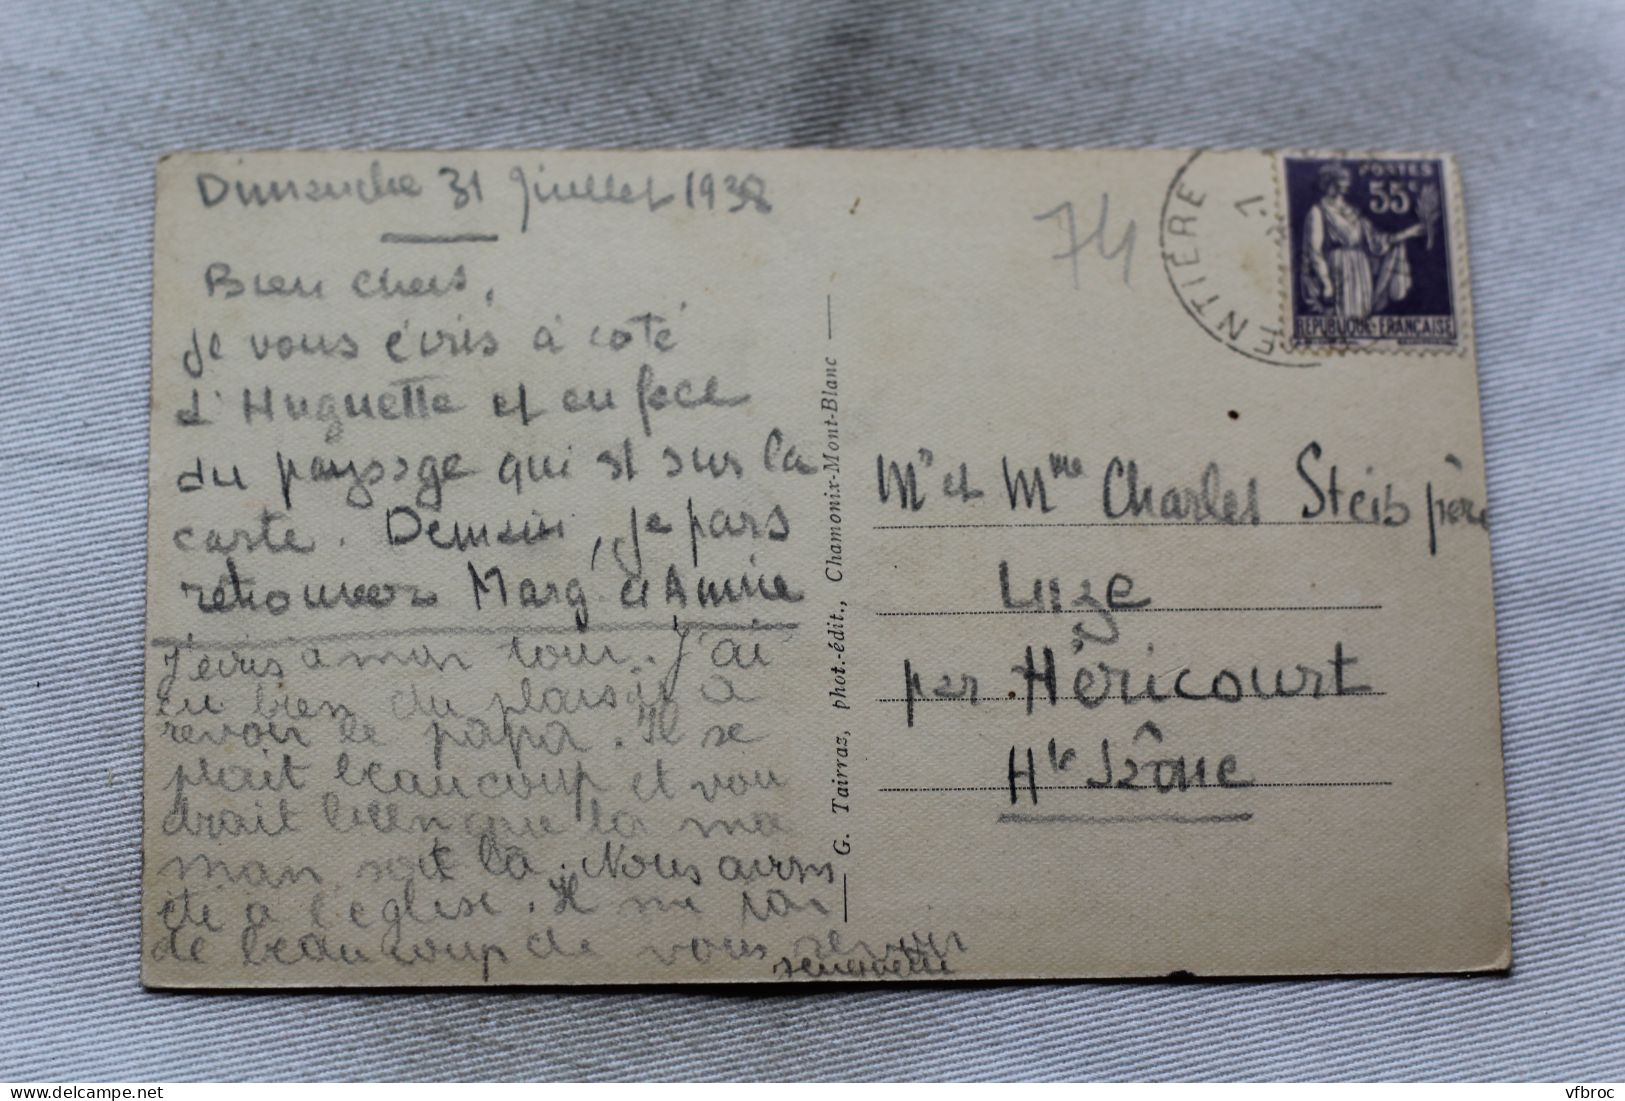 Dimanche 31 Juillet 1938
Bien chers,
Je vous écris à coté
d'Huguette et en face
du paysage qui est sur la
carte. Demain, je pars
retrouver Marg. et Annie
J'écris a mon tour. J'ai
eu bien du plaisir a
revoir le papa. Il se
plait beaucoup et vou
drait bien que la ma
man soit là. Nous avons
été à l'église. Il me
de beaucoup de vous
74
ENTIÈRE
POSTES
55c
REPUBLIQUE FRANÇAISE
G. Tairraz, phot.-édit., Chamonix-Mont-Blanc
Mr et Mme Charles Steib père
Luze
par Héricourt
Hte Saône
vfbroc